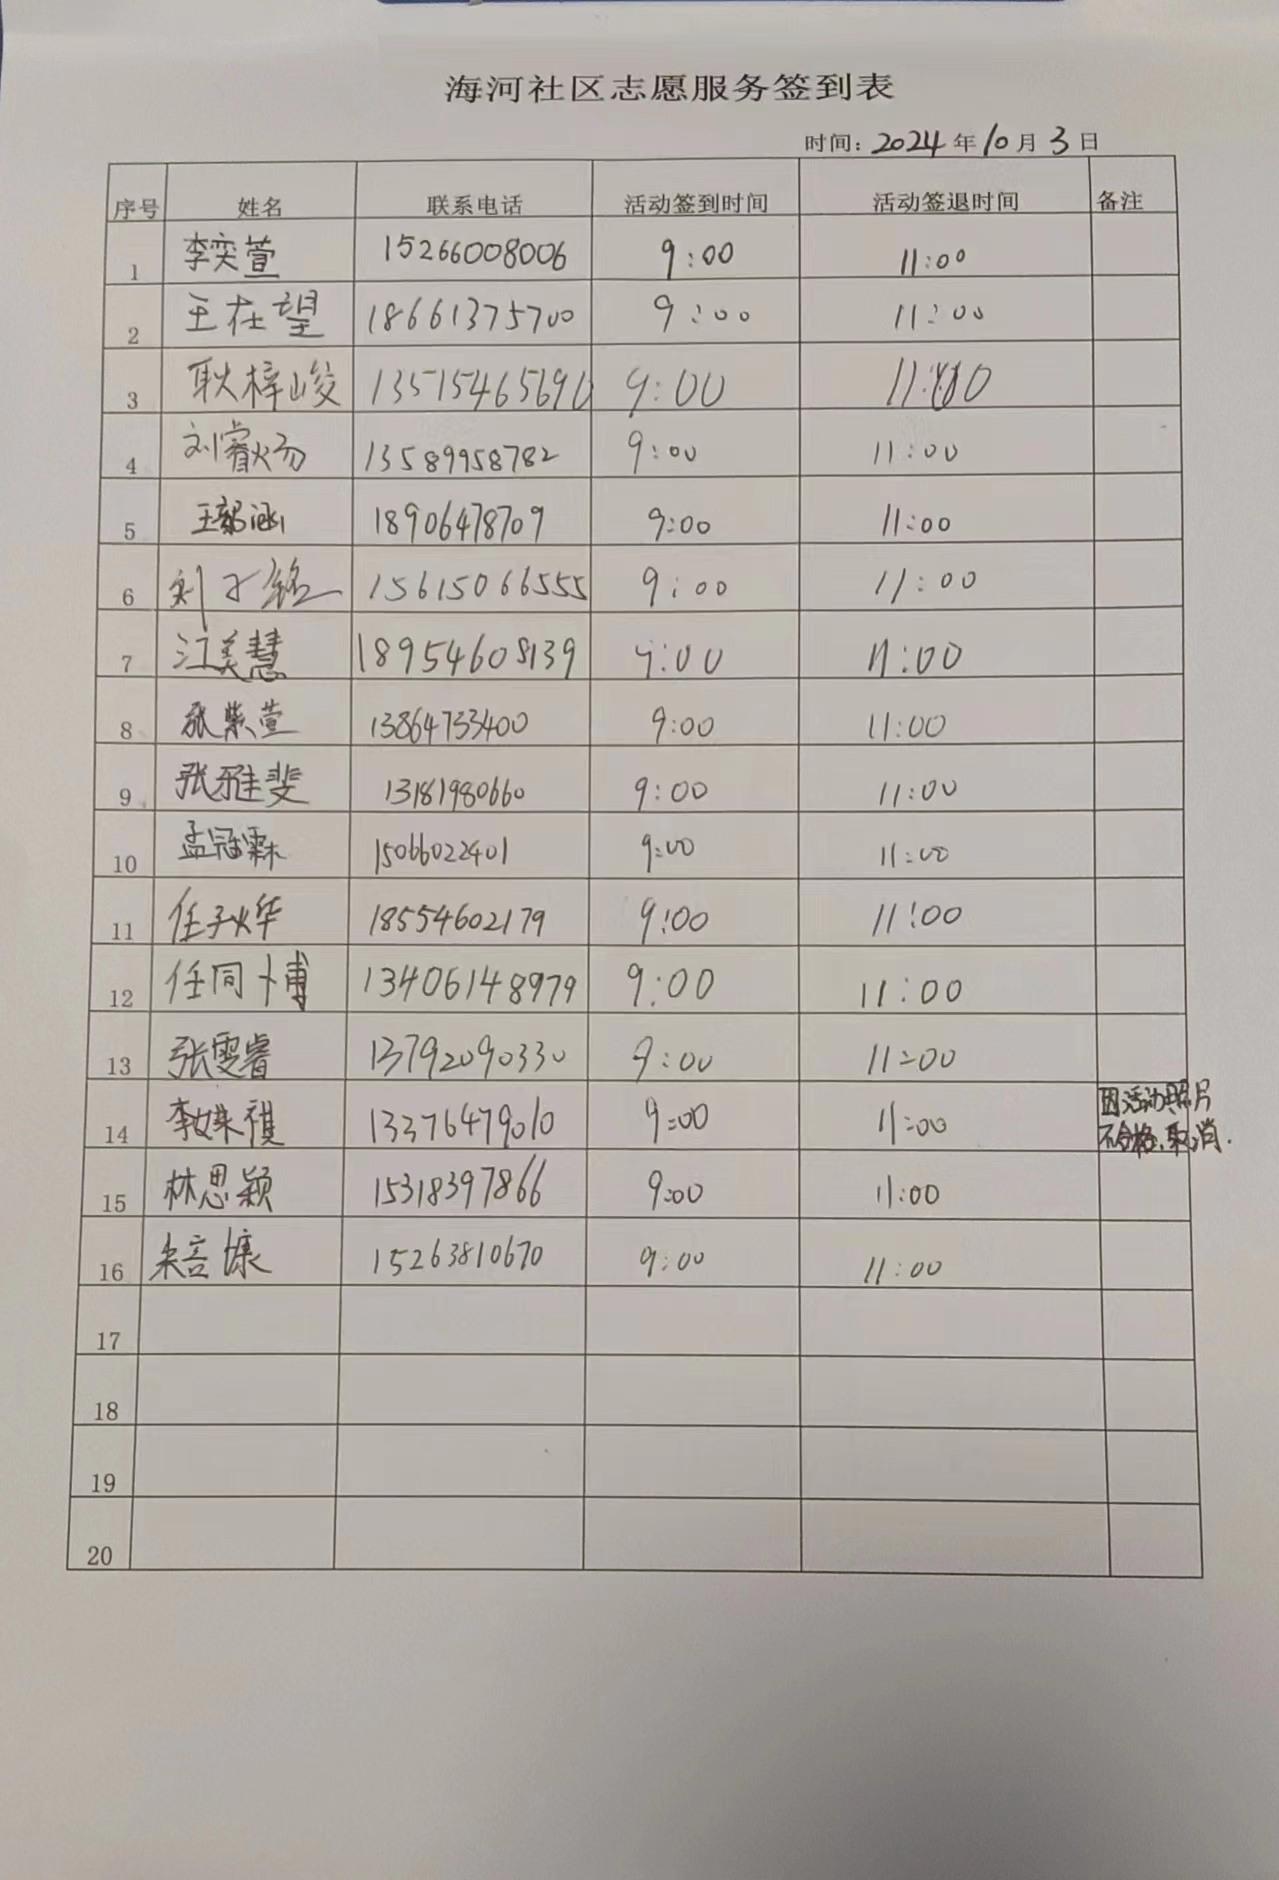 海河社区志愿服务签到表
时间：2024年10月3日
序号 姓名 联系电话 活动签到时间 活动签退时间 备注
1 李奕萱 15266008006 9:00 11:00
2 王在望 18661375700 9:00 11:00
3 耿梓峻 13515465690 9:00 11:00
4 刘睿炀 13589958782 9:00 11:00
5 王郡涵 18906478709 9:00 11:00
6 刘才铭 15615066555 9:00 11:00
7 江美慧 18954608139 9:00 11:00
8 张紫萱 13864733400 9:00 11:00
9 张雅斐 13181980660 9:00 11:00
10 孟冠霖 15066022401 9:00 11:00
11 任子烨 18554602179 9:00 11:00
12 任同博 13406148979 9:00 11:00
13 张雯睿 13792090330 9:00 11:00
14 李姝祺 13376479010 9:00 11:00 因活动照片
不合格,取消.
15 林思颖 15318397866 9:00 11:00
16 15263810670 9:00 11:00
17
18
19
20